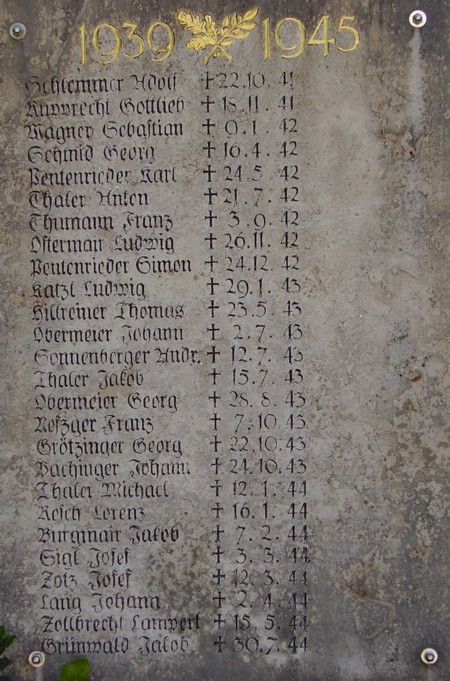 1939 1945
Schlemmer Adolf † 22.10.41
Rupprecht Gottlieb † 18.11.41
Wagner Sebastian † 9.1.42
Schmid Georg † 16.4.42
Pentenrieder Karl † 24.5.42
Thaler Anton † 21.7.42
Thumann Franz † 3.9.42
Ostermair Ludwig † 26.11.42
Pentenrieder Simon † 24.12.42
Katzl Ludwig † 29.1.43
Hillreiner Thomas † 23.5.43
Obermeier Johann † 2.7.43
Sonnenberger Andr. † 12.7.43
Thaler Jakob † 15.7.43
Obermeier Georg † 28.8.43
Franz † 7.10.43
Grötzinger Georg † 22.10.43
Bachinger Johann † 24.10.43
Thaler Michael † 12.1.44
Resch Lorenz † 16.1.44
Burgmair Jakob † 7.2.44
Sigl Josef † 3.3.44
Zotz Josef † 12.3.44
Lang Johann † 2.4.44
Zollbrecht Lampert † 15.5.44
Grünwald Jakob † 30.7.44